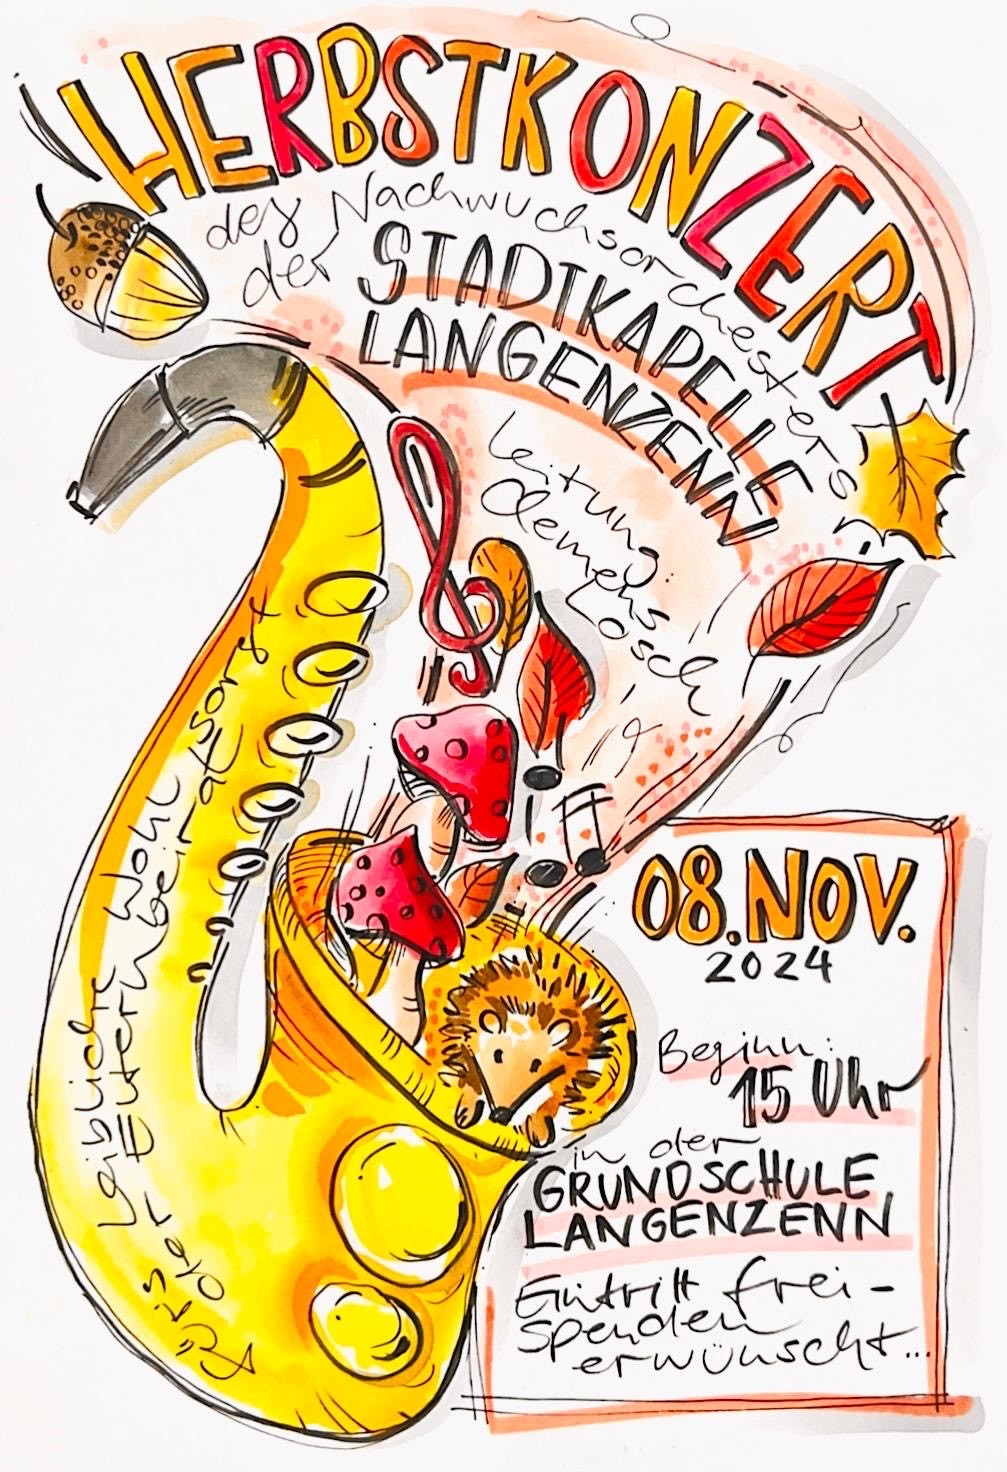 HERBSTKONZERT
des Nachwuchsorchesters
der STADTKAPELLE
LANGENZENN
Leitung:
Clemens
Lösch
Fürs leibliche Wohl
der Elternbeirat sorgt
08. NOV.
2024
Beginn:
15 Uhr
in der
GRUNDSCHULE
LANGENZENN
Eintritt frei -
spenden
erwünscht...